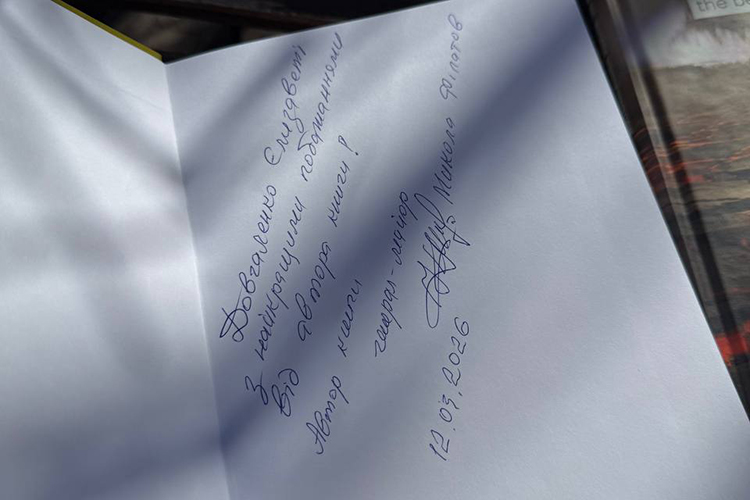 Довгаленко Єлизаветі
З найкращими побажаннями
від автора книги!
Автор книги
генерал-майор
Микола Філатов
12.03.2026
the be